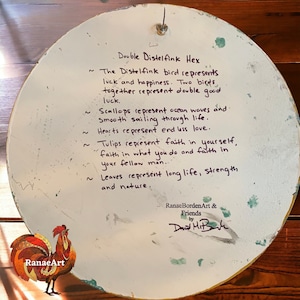 Double Distelfink Hex
~ The Distelfink bird represents
luck and happiness. Two birds
together represent double good
luck.
~ Scallops represent ocean waves and
smooth sailing through life.
~ Hearts represent endless love.
~ Tulips represent faith in yourself,
faith in what you do and faith in
your fellow man.
~ Leaves represent long life, strength
and nature.
RanaeBordenArt &
Friends
by
RanaeArt